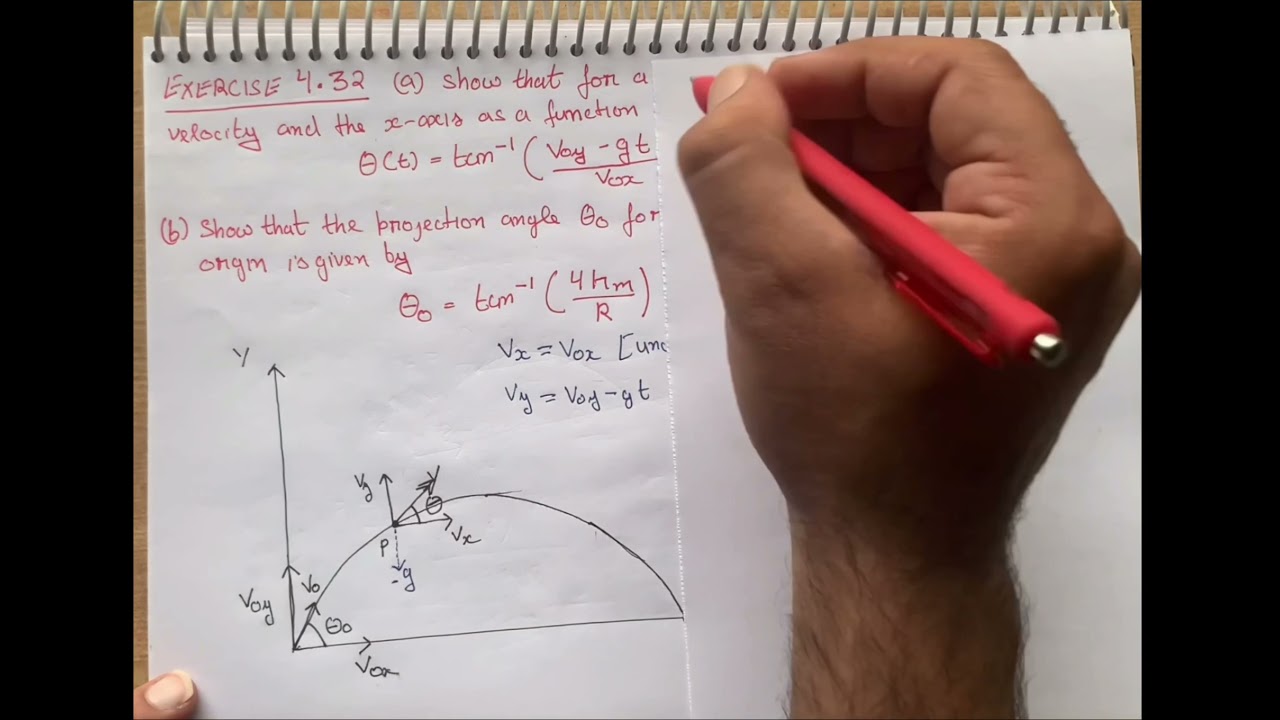 EXERCISE 4.32 (a) Show that for a
velocity and the x-axis as a function
θ(t) = tan⁻¹ ( Voy - gt / Vox
(b) Show that the projection angle θo for
origin is given by
θo = tan⁻¹ ( 4Hm / R )
Vx = Vox [
Vy = Voy - gt
Y
Vy
V
θ
Vx
P
-g
Vo
Voy
θo
Vox